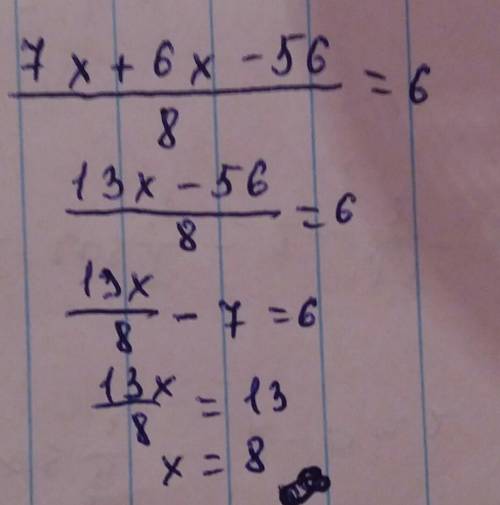 7x + 6x - 56
/ 8 = 6
13x - 56
/ 8 = 6
13x / 8 - 7 = 6
13x / 8 = 13
x = 8